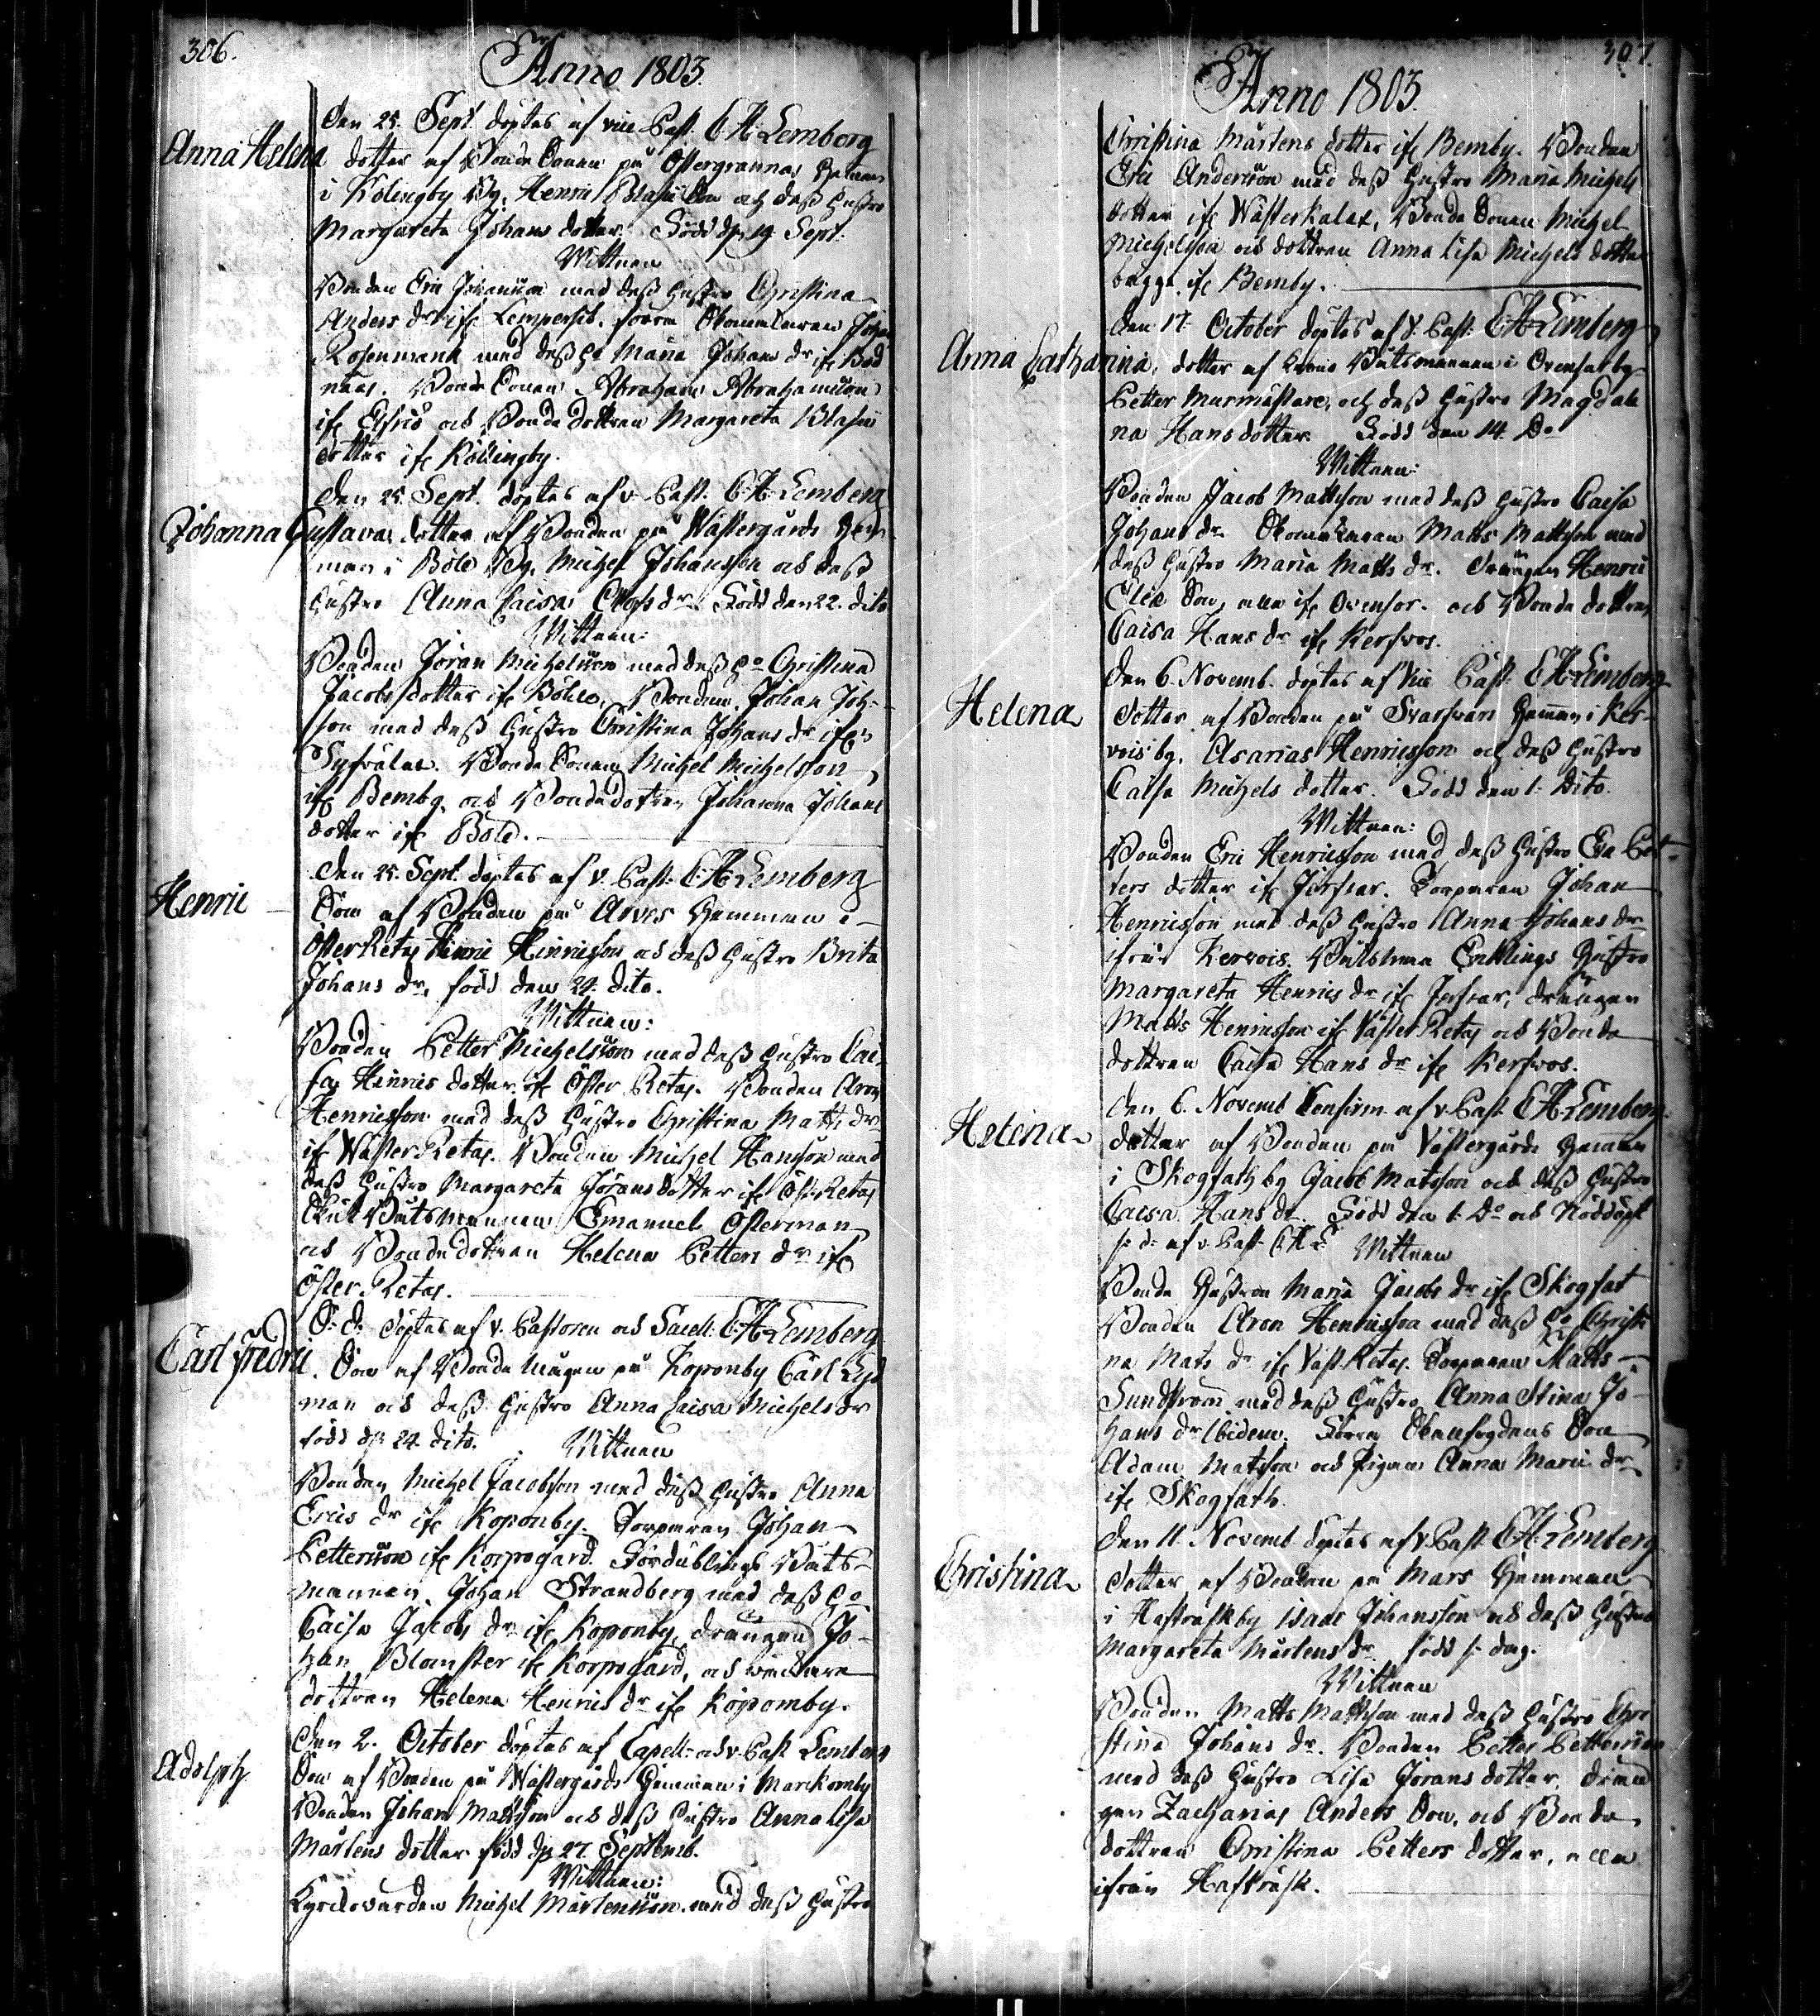 306.
Anno 1803.
Den 25. Sept. döptes af vice Past. C. H. Lemberg
Anna Helena dotter af Bonde Sonen på Östergrannas Heman
i Kölingby By. Henric Blasii Son och dess hustro
Margareta Johans dotter. Född dn 19 Sept.
Wittnen
Bonden Eric Johansson med dess hustro Christina
Anders dr ifr Lempersö. förra Johan
Rosenmank med dess ho Maria Johans dr ifr Bod
näs. Bonde Sonen Abraham Abrahamsson
ifr och Bonde dottren Margareta Blasii
dotter ifr Köllingby.
Den 25. Sept. döptes af v. Past. C. H. Lemberg
Johanna Gustava dotter af Bonden på Wästergårds Hem-
man i Böle By. Michel Johansson och dess
hustro Anna Caisa dr. Född den 22. dito
Wittnen:
Bonden Jöran Michelsson med dess ho Christina
Jacobs dotter ifr Böhle. Bonden Johan Joh-
sson med dess hustro Christina Johans dr ifr
Bonde Sonen Michel Michelsson
ifr Bemby. och Bondedottren Johanna Johans
dotter ifr Böle.
Den 25. Sept. döptes af v. Past. C. H. Lemberg
Henric Son af Bonden på Arves Hemman i
Öster Retas Henric Henricsson och dess hustro Brita
Johans dr, född den 24. dito.
Wittnen:
Bonden Petter Michelsson med dess hustro Cai-
sa Henrics dotter ifr Öster Retas. Bonden Aron
Henricsson med dess hustro Christina Matts dr
ifr Wäster Retas. Bonden Michel Hansson med
dess hustro Margareta Jörans dotter ifr Öst. Retas
Båtsmannen Emanuel Österman
och Bondedottren Helena Petters dr ifr
Öster Retas.
S. d. döptes af v. Pastoren och Sacell. C. H. Lemberg
Carl Fredric. Son af Bonde mågen på Koponby Carl
man och dess hustro Anna Caisa Michels dr
född dn 24. dito. Wittnen
Bonden Michel Jacobsson med dess hustro Anna
Erics dr ifr Koponby. Torparen Johan
Pettersson ifr Korpogård. Fördublings Båts-
mannen Johan Strandberg med dess ho
Caisa Jacobs dr ifr Koponby, drängen Jo-
han Blomster ifr Korpogård, och
dottren Helena Henrics dr ifr Köponby.
Den 2. October döptes af Capell- och v. Past Lemberg
Adolph. Son af Bonden på Wästergårds Hemman i Markomby
Bonden Johan Mattsson och dess hustro Anna Lisa
Mårtens dotter född dn 27. Septemb.
Wittnen:
Kyrkovärden Michel Mårtensson med dess hustro
307.
Anno 1803.
Christina Mårtens dotter ifr Bemby. Bonden
Eric Andersson med dess hustro Maria Michels
dotter ifr Wästerkalax, Bonde Sonen Michel
Michelsson och dottren Anna Lisa Michels dotter
bägge ifr Bemby.
Den 17. October döptes af v. Past: C. H. Lemberg
Anna Catharina, dotter af Båtsmannen i Ovensor by
Petter Murmästare, och dess hustro Magdale
na Hans dotter. Född den 14. Do
Wittnen:
Bonden Jacob Mattsson med dess hustro Caisa
Johans dr. Matts Mattsson med
dess hustro Maria Matts dr. Drängen Henric
Elia Son, alla ifr Ovensor. och Bonde dottren
Caisa Hans dr ifr Kersvos.
Den 6. Novemb. döptes af vice Past: C. H. Lemberg
Helena dotter af Bonden på Svarfvars Heman i Ker-
vois by. Asarias Henricsson och dess hustro
Caisa Michels dotter. Född den 1. Dito.
Wittnen:
Bonden Eric Henricsson med dess hustro Eva Pet-
ters dotter ifr Torparen Johan
Henricsson med dess hustro Anna Johans dr
ifrån Kervois. Båtsman Enklings hustro
Margareta Henrics dr ifr drängen
Matts Henricsson ifr Väster Retas och Bonde
dottren Caisa Hans dr ifr Kersvos.
Den 6. Novemb Confirm. af v. Past C. H. Lemberg
Helena dotter af Bonden på Västergårds Hemman
i Skogfath by Jacob Matsson och dess hustro
Caisa Hans dr. Född den 1. Do och Nöddöpt
s. d. af v. Past. C. H. L. Wittnen
Bonde hustrun Maria Jacobs dr ifr Skogfat
Bonden Aron Henricsson med dess ho Christi
na Mats dr ifr Väst. Retas. Torparen Matts
Sundström med dess hustro Anna Stina Jo-
hans dr Ibidem. Förra Son
Adam Matsson och Pigan Anna Maria dr
ifr Skogfath.
Den 11. Novemb döptes af v. Past C. H. Lemberg
Christina dotter af Bonden på Mars Hemman
i Hafsräsk by Isaac Johansson och dess hustro
Margareta Mårtens dr. född s. dag.
Wittnen
Bonden Matts Mattsson med dess hustro Chri
stina Johans dr. Bonden Petter Pettersson
med dess hustro Lisa Jörans dotter. drän
gen Zacharias Anders Son, och Bonde
dottren Christina Petters dotter, alla
ifrån Hafsräsk.